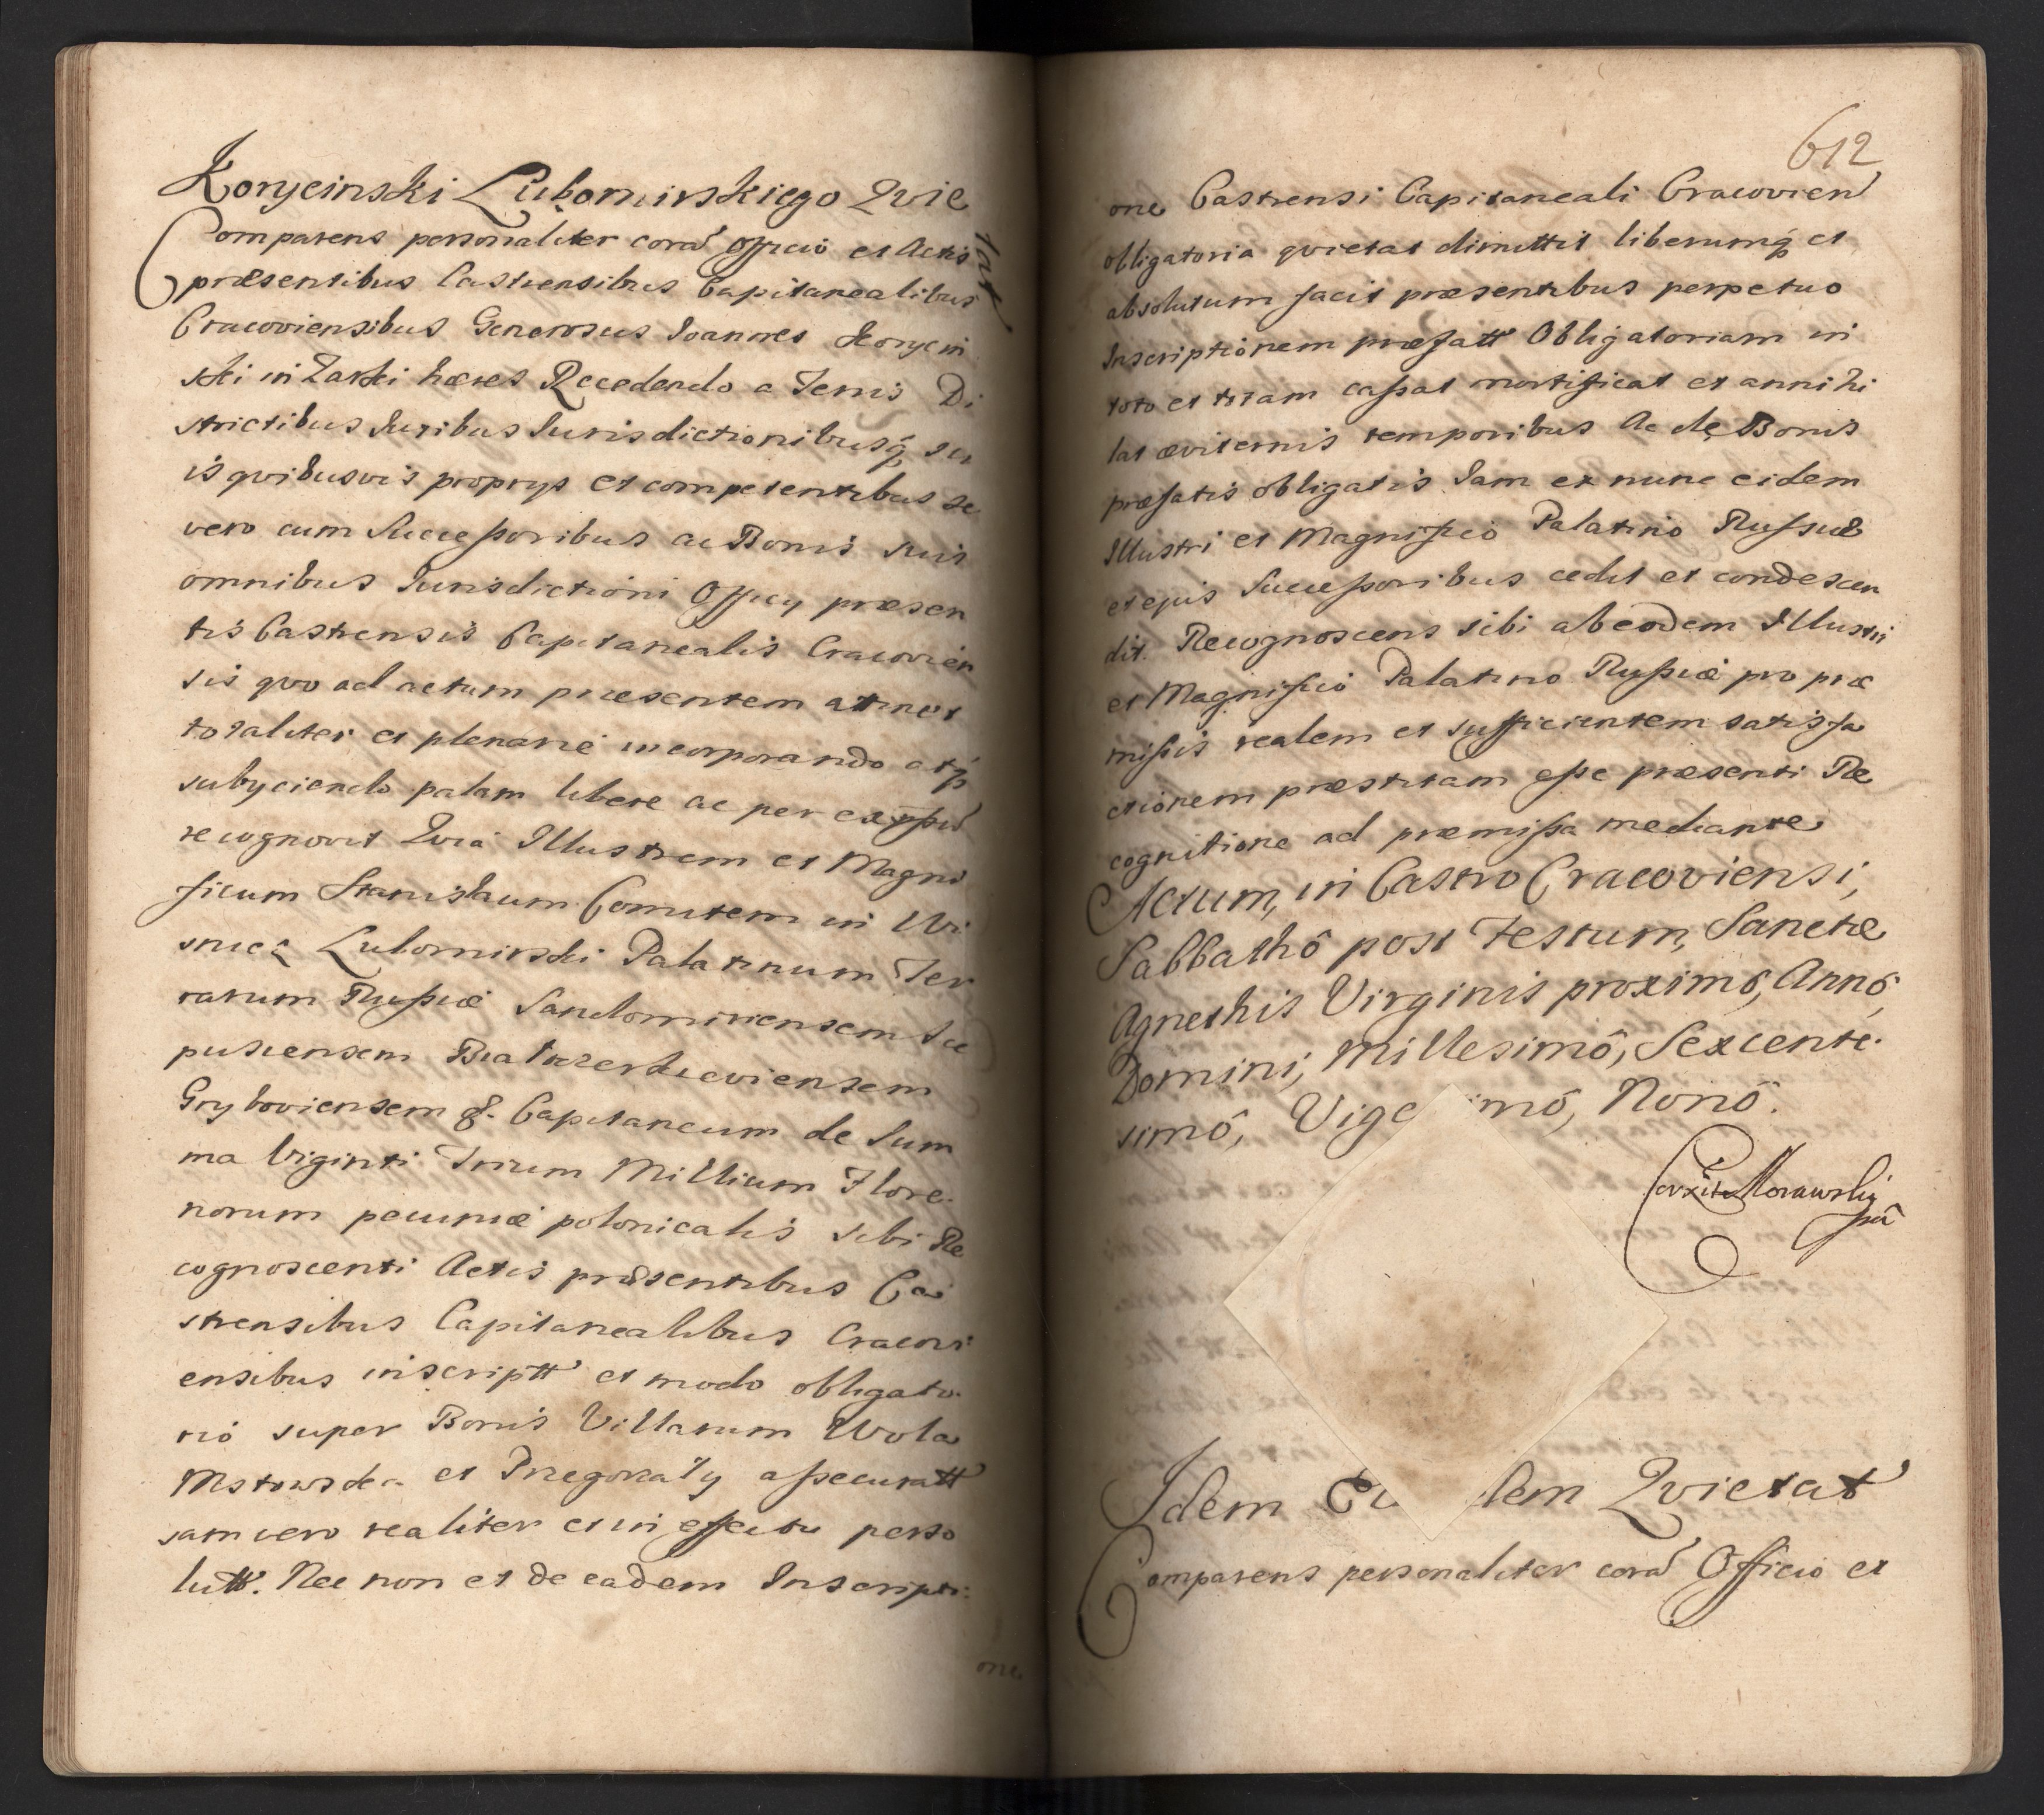 Korycinski Lubomirskiego Qvie
tat
Comparens personaliter corā Officio et Actis
præsentibus Castrensibus Capitanealibus
Cracoviensibus Generosus Joannes Korycin
ski in Zarki hæres Recedendo a Terris Di
strictibus Juribus Jurisdictionibusq̨ su
is qvibusvis proprys et competentibus se
vero cum Successoribus ac Bonis suis
omnibus Jurisdictioni Officy præsen
tis Castrensis Capitanealis Cracovien
sis qvo ad actum præsentem attinet
totaliter et plenarie incorporando atq̨
subyciendo palam libere ac per expssū
recognovit Qvia Illustrem et Magni
ficum Stanislaum Comitem in Wi
snicz Lubomirski Palatinum Ter
rarum Russiæ Sandomiriensem Sce
pusiensem Bialocerkieviensem
Gryboviensem &. Capitaneum de Sum
ma Viginti Trium Millium Flore.
norum pecuniæ polonicalis sibi Re
cognoscenti Actis præsentibus Ca
strensibus Capitanealibus Cracovi
ensibus inscriptt et modo obligato.
rio super Bonis Villarum Wola
Mstowska et Przegonaly assecuratt
jam vero realiter et in effectu perso
lutt. Nec non et de eadem Inscripti:
one
612
one Castrensi Capitaneali Cracovien
obligatoria qvietat dimittit liberumq̨ et
absolutum facit præsentibus perpetuo
Inscriptionem præfatt Obligatoriam in
toto et totam cassat mortificat et annihi
lat æviternis temporibus Ac de Bonis
præfatis obligatis Jam ex nunc eidem
Illustri et Magnifico Palatino Russiæ
et ejus Successoribus cedit et condescen
dit. Recognoscens sibi ab eodem Illustri
et Magnifico Palatino Russiæ pro præ
missis realem et sufficientem satisfa
ctionem præstitam esse præsenti Re
cognitione ad præmissa mediante
Actum, in Castro Cracoviensi,
Sabbathô post Festum, Sanctæ
Agnethis Virginis proximô, Annô
Domini, Millesimô, Sexcente.
simô, Vige imô, Nonô.
Morawski
Idem Eu dem Qvietat
Comparens personaliter corā Officio et